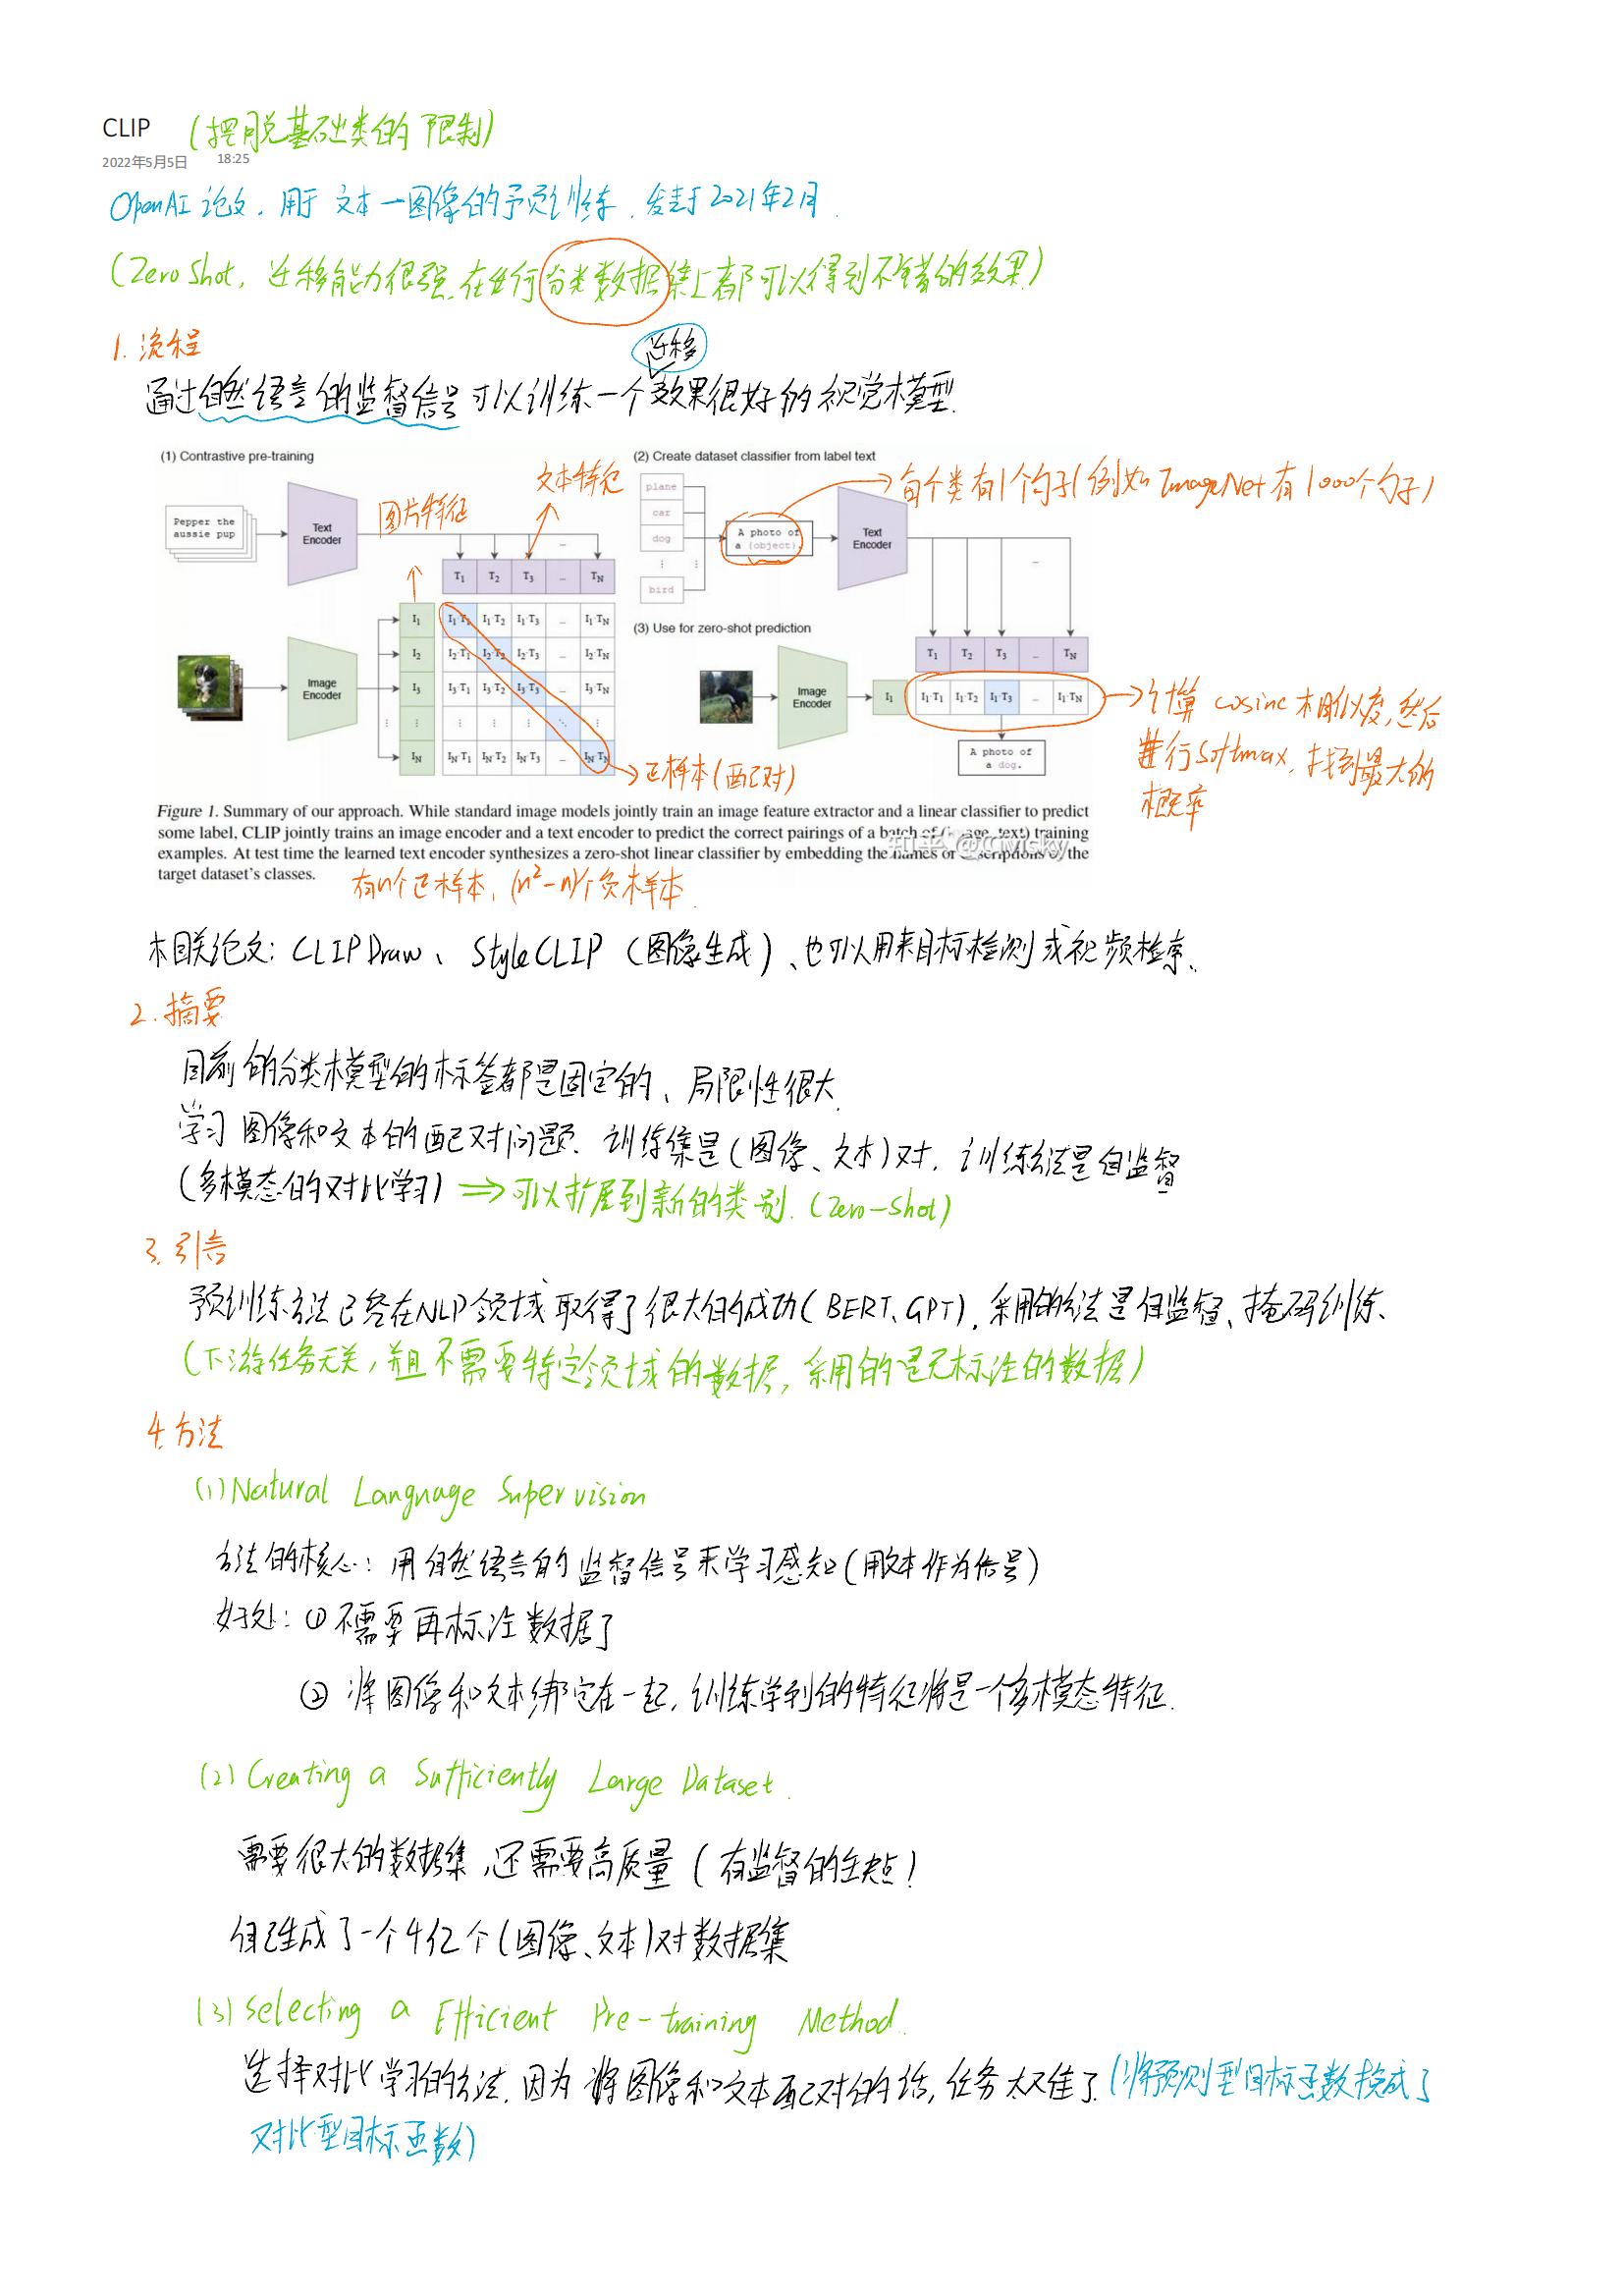 CLIP (摆脱基础类的限制)
2022年5月5日 18:25
OpenAI论文、用于 文本—图像的予页训练、发表于2021年2月.
(Zero Shot, 迁移能力很强、在任何分类数据集上都可以得到不错的效果)
1. 流程
迁移
通过自然语言的监督信号可以训练一个效果很好的视觉模型.
(1) Contrastive pre-training
(2) Create dataset classifier from label text
文本特征
图片特征
每个类有1个句子(例如ImageNet有1000个句子)
Pepper the
aussie pup
Text
Encoder
T1 T2 T3 … TN
Image
Encoder
I1 I1·T1 I1·T2 I1·T3 … I1·TN
I2 I2·T1 I2·T2 I2·T3 … I2·TN
I3 I3·T1 I3·T2 I3·T3 … I3·TN
⋮ ⋮ ⋮ ⋮ ⋱ ⋮
IN IN·T1 IN·T2 IN·T3 …
正样本(配对)
plane
car
dog
⋮
bird
A photo of
a {object}.
Text
Encoder
…
(3) Use for zero-shot prediction
T1 T2 T3 … TN
Image
Encoder
I1 I1·T1 I1·T2 I1·T3 … I1·TN
A photo of
a dog.
计算 cosine 相似度,然后
进行Softmax, 找到最大的
概率
Figure 1. Summary of our approach. While standard image models jointly train an image feature extractor and a linear classifier to predict
some label, CLIP jointly trains an image encoder and a text encoder to predict the correct pairings of a batch of (image, text) training
examples. At test time the learned text encoder synthesizes a zero-shot linear classifier by embedding the names or descriptions of the
target dataset's classes.
知乎 @Civisky
有n个正样本、(n²-n)个负样本.
相关论文: CLIPDraw、StyleCLIP (图像生成)、也可以用来目标检测或视频检索、
2. 摘要
目前的分类模型的标签都是固定的、局限性很大.
学习图像和文本的配对问题. 训练集是(图像、文本)对. 训练方法是自监督
(多模态的对比学习) ⇒ 可以扩展到新的类别. (Zero-Shot)
3. 引言
预训练方法已经在NLP领域取得了很大的成功(BERT、GPT). 采用的方法是自监督、掩码训练、
(下游任务无关, 并且不需要特定领域的数据, 采用的是无标注的数据)
4. 方法
(1) Natural Language Supervision
方法的核心: 用自然语言的监督信号来学习感知(用文本作为信号)
好处: ① 不需要再标注数据了
② 将图像和文本绑定在一起, 训练学到的特征将是一个多模态特征.
(2) Creating a Sufficiently Large Dataset.
需要很大的数据集,还需要高质量 (有监督的缺点)
自己生成了一个4亿个(图像、文本)对数据集
(3) Selecting a Efficient Pre-training Method.
选择对比学习的方法. 因为将图像和文本配对的话, 任务太难了. (将预测型目标函数换成了
对比型目标函数)